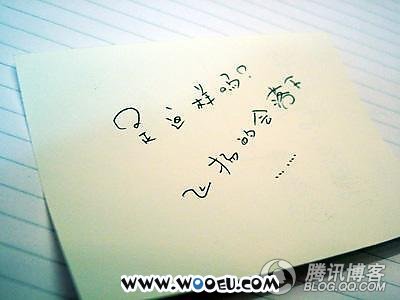 是这样吗?
飞扬的会落下
……
www.wooeu.com
腾讯博客
BLOG.QQ.COM